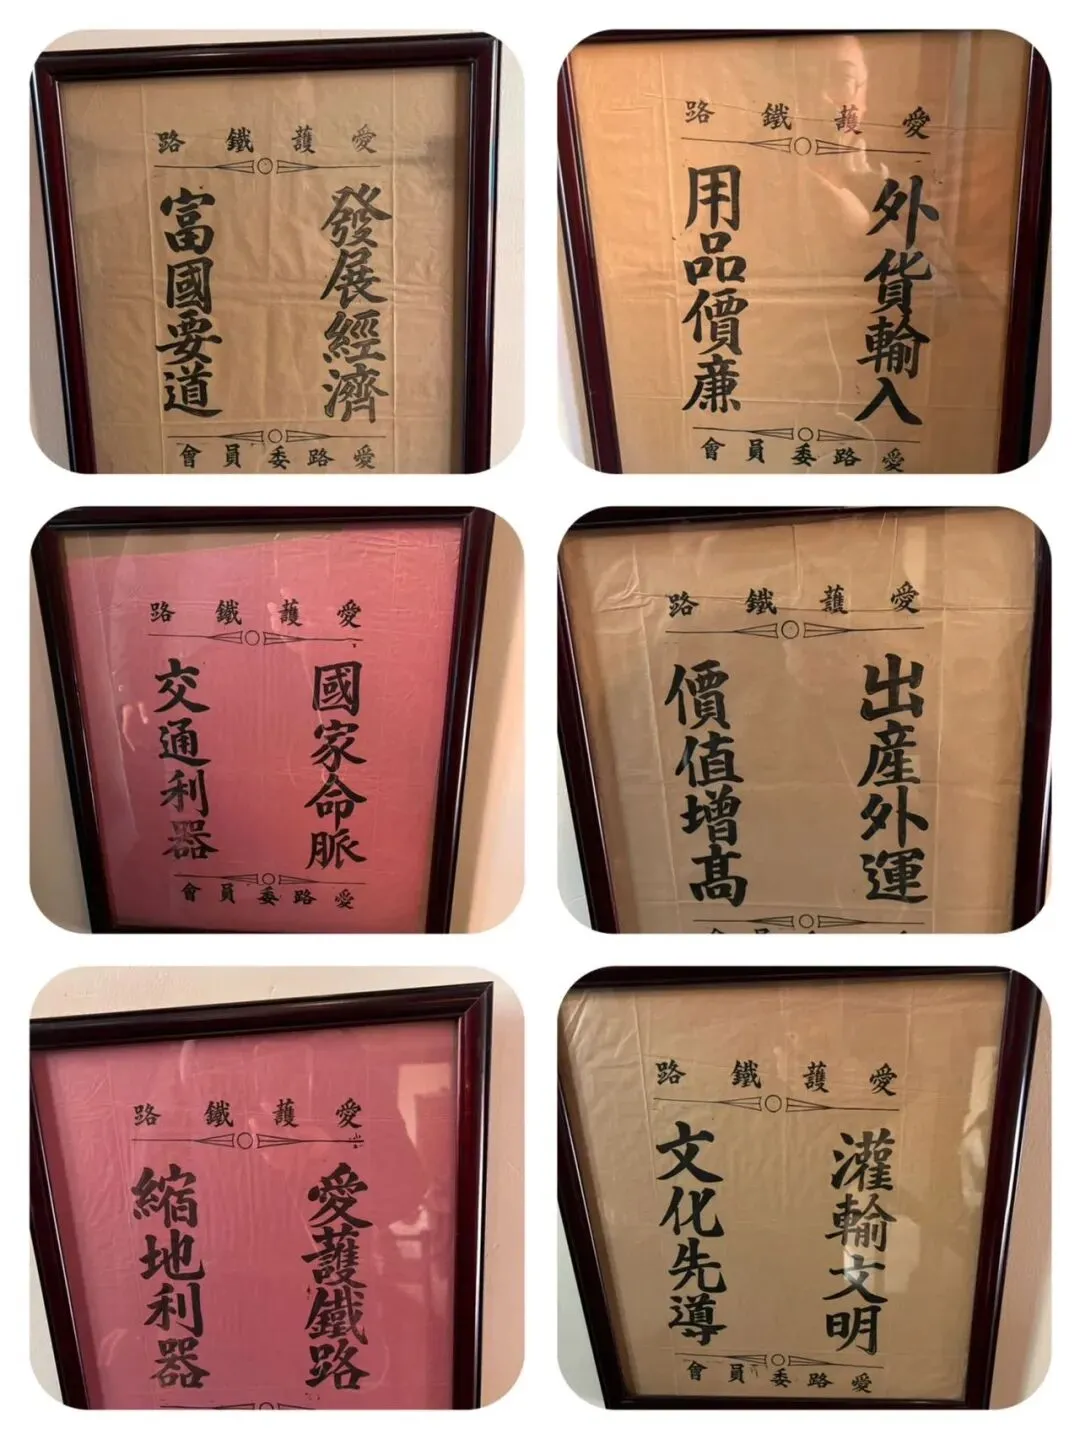 愛護鐵路
發展經濟
富國要道
愛路委員會
愛護鐵路
外貨輸入
用品價廉
愛路委員會
愛護鐵路
國家命脈
交通利器
愛路委員會
愛護鐵路
出產外運
價值增髙
愛護鐵路
愛護鐵路
縮地利器
愛護鐵路
灌輸文明
文化先導
愛路委員會